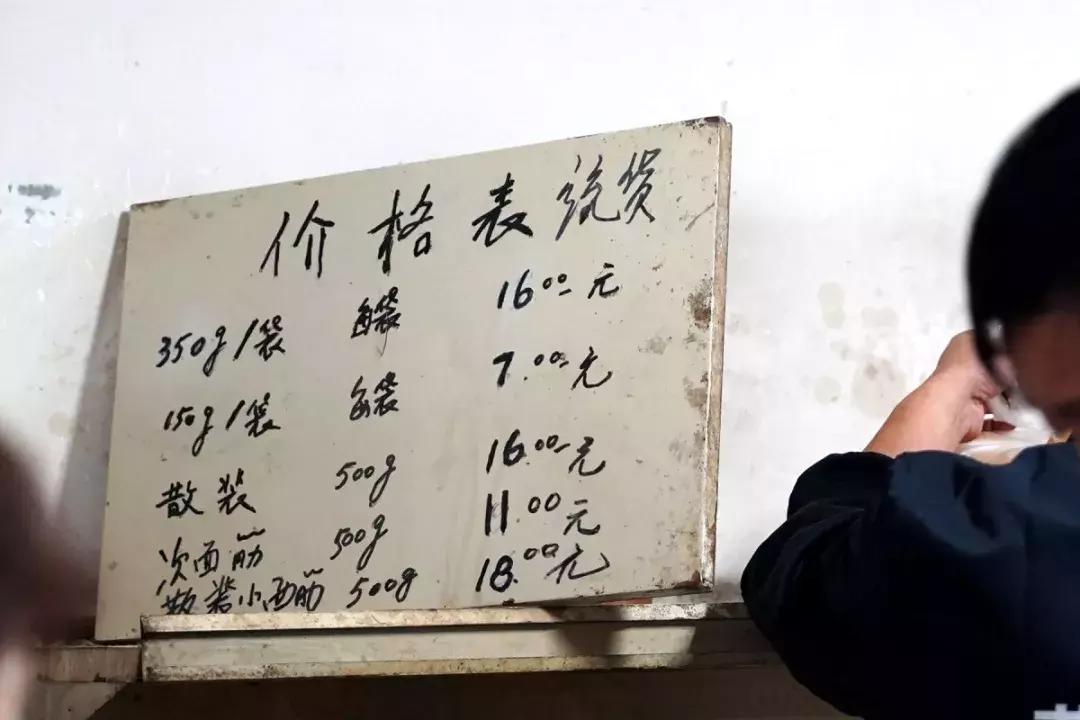 价格表 统货
350g/袋 每袋 16.00元
150g/袋 每袋 7.00元
散装 500g 16.00元
次面筋 500g 11.00元
散装小面筋 500g 18.00元